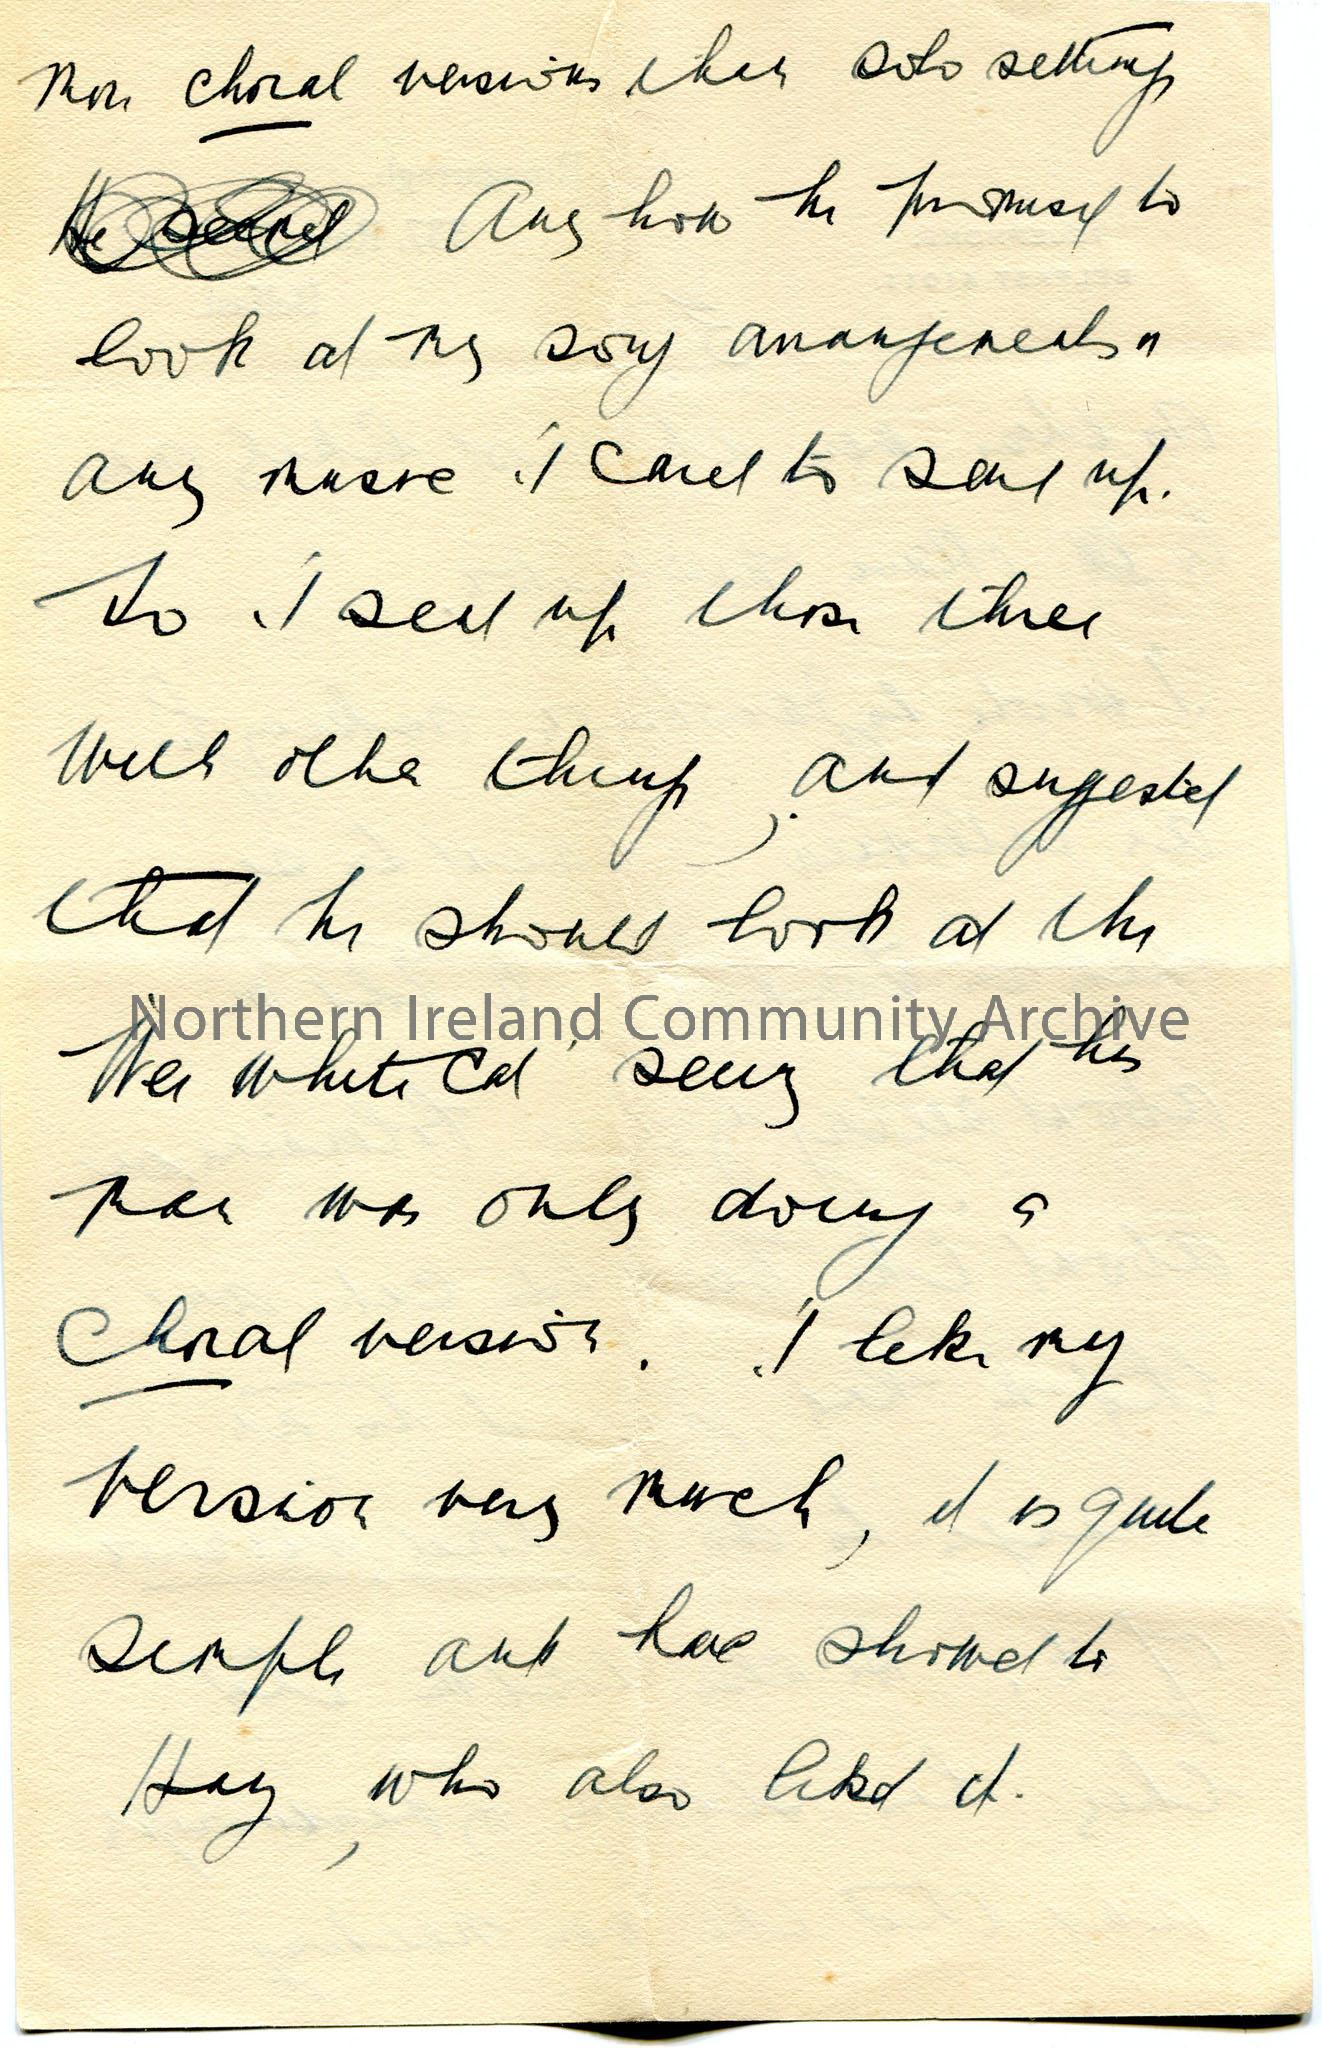 more choral versions than solo settings
He Any how he promised to
look at my song arrangements or
any music I cared to send up.
So I sent up those three
with other things, and suggested
that he should look at the
Northern Ireland Community Archive
'Wee white Cat' seeing that his
man was only doing a
Choral version. I like my
version very much, it is quite
simple and have showed to
Hay, who also liked it.